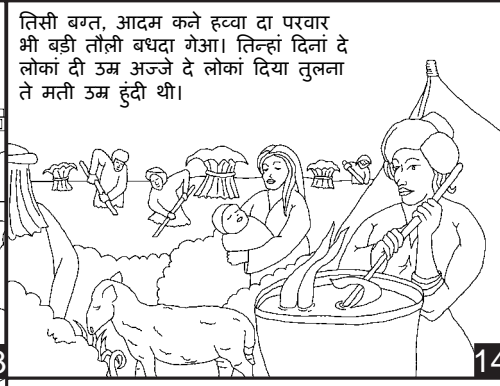 तिसी बग्त, आदम कने हव्वा दा परवार
भी बड़ी तौल़ी बधदा गेआ। तिन्हां दिनां दे
लोकां दी उम्र अज्जे दे लोकां दिया तुलना
ते मती उम्र हुंदी थी।
3
14